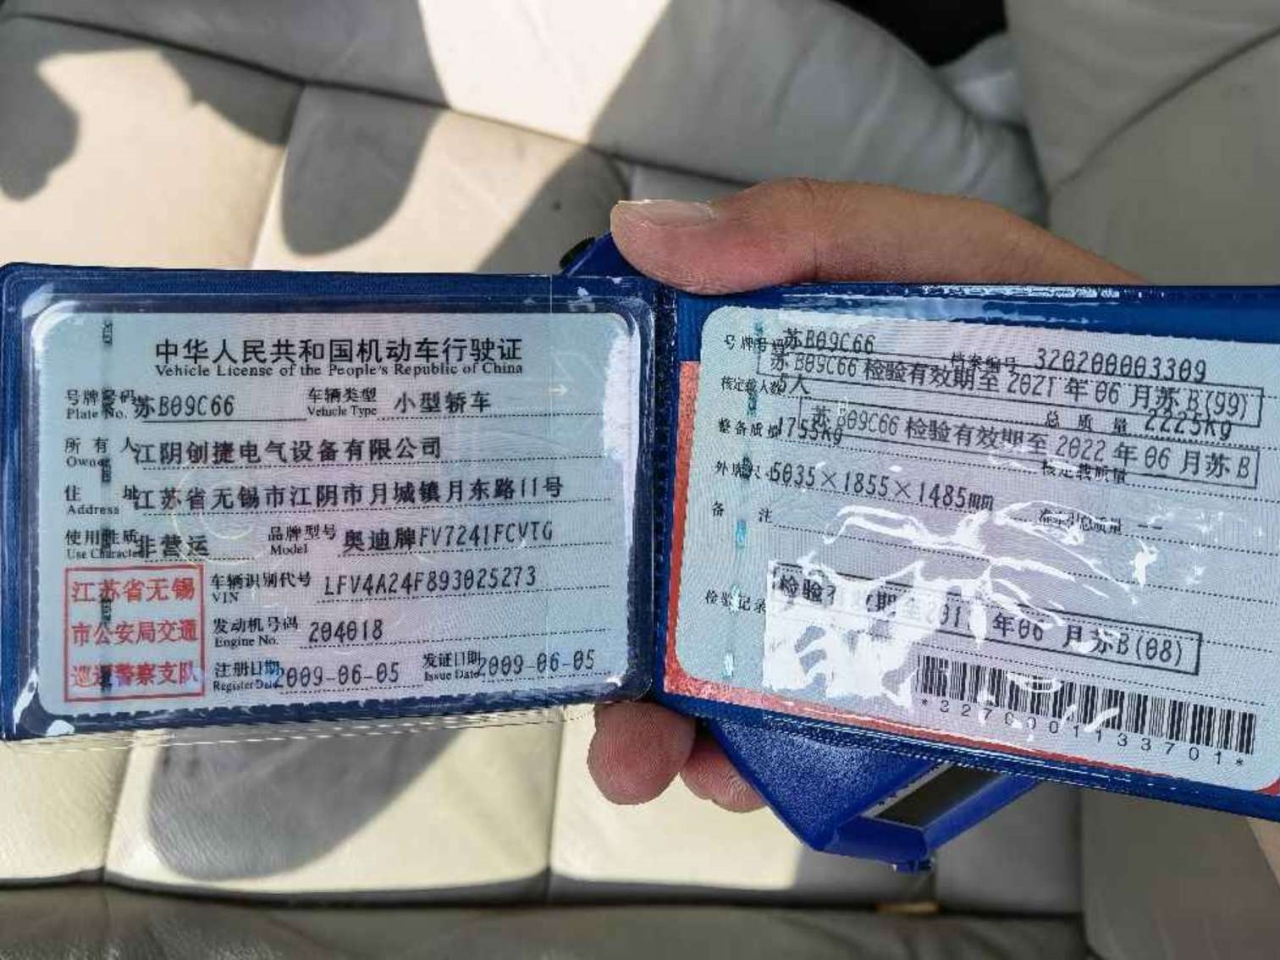 中华人民共和国机动车行驶证
Vehicle License of the People's Republic of China
号牌号码 苏B09C66 车辆类型 小型轿车
Plate No. Vehicle Type
所有人 江阴创捷电气设备有限公司
Owner
住址 江苏省无锡市江阴市月城镇月东路11号
Address
使用性质 非营运 品牌型号 奥迪牌FV7241FCVTG
Use Character Model
江苏省无锡
市公安局交通
巡逻警察支队
车辆识别代号 LFV4A24F893025273
VIN
发动机号码 204018
Engine No.
注册日期 2009-06-05 发证日期 2009-06-05
Register Date Issue Date
号牌号码 苏B09C66 档案编号 320200003309
苏B09C66 检验有效期至 2021 年 06 月苏B(99)
核定载人数 5人 总质量 2225kg
苏B09C66 检验有效期至 2022 年 06 月苏B
整备质量 1755kg 核定载质量
外廓尺寸 5035×1855×1485mm 准牵引总质量 --
备注
检验记录
检验有效期至201 年06 月苏B(08)